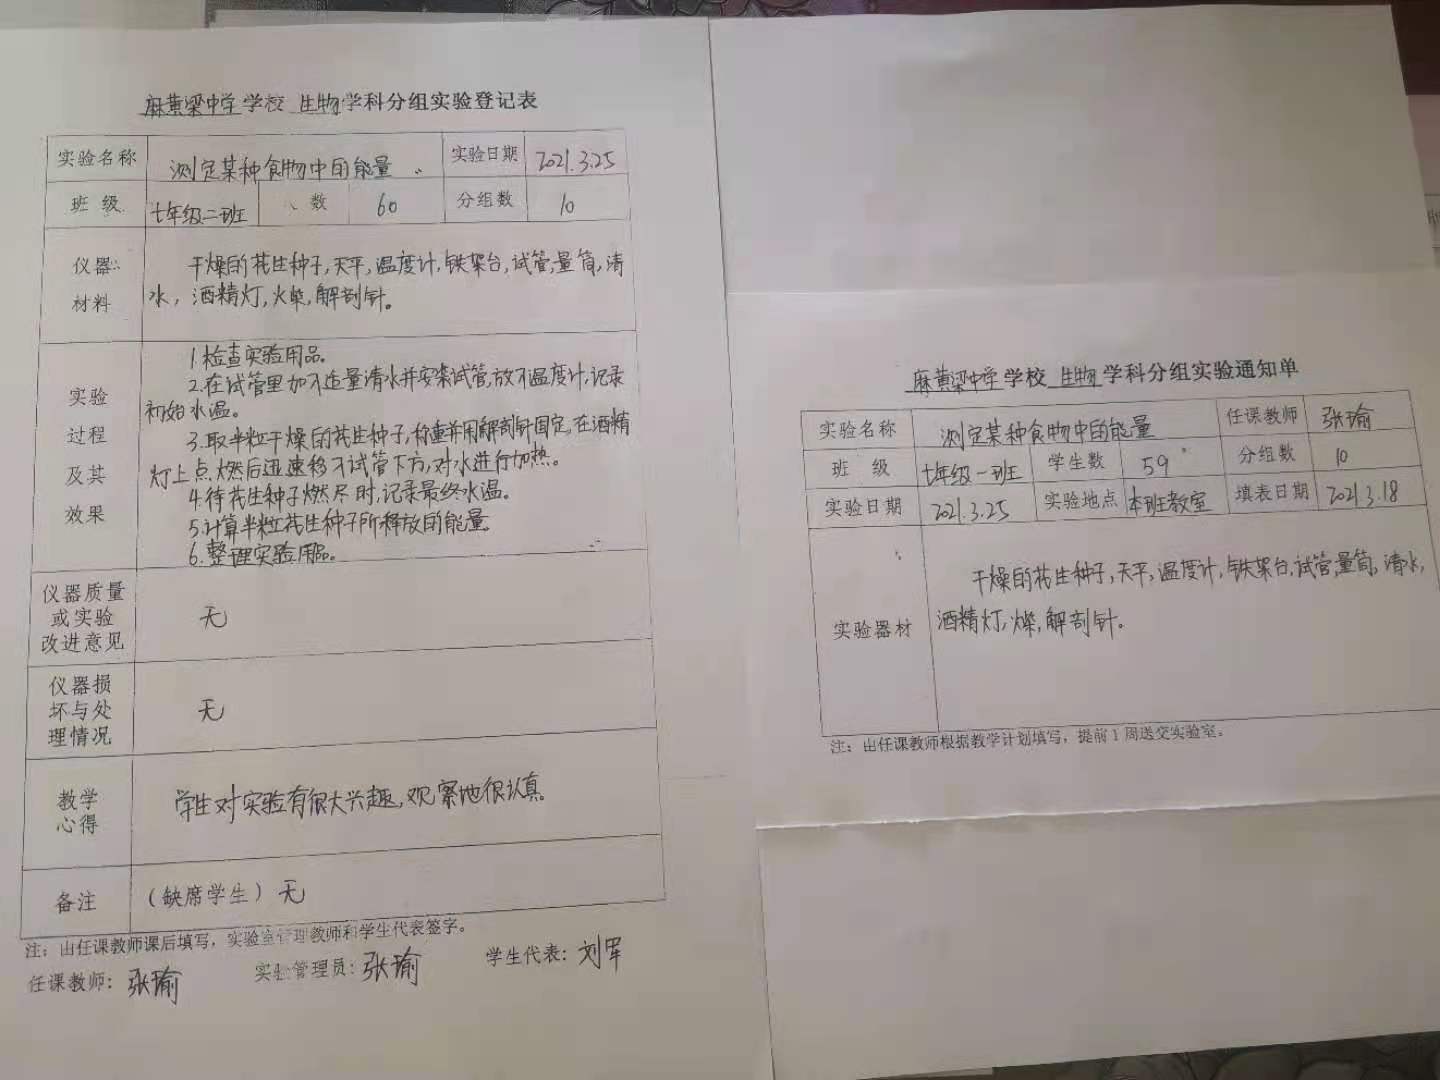 麻黄梁中学学校 生物学科分组实验登记表
实验名称 测定某种食物中的能量 实验日期 2021.3.25
班 级 七年级二班 数 60 分组数 10
仪器材料 干燥的花生种子,天平,温度计,铁架台,试管,量筒,清
水,酒精灯,火柴,解剖针。
实验过程及其效果
1.检查实验用品。
2.在试管里加入适量清水并安装试管,放入温度计,记录
初始水温。
3.取半粒干燥的花生种子,称重并用解剖针固定,在酒精
灯上点燃后迅速移入试管下方,对水进行加热。
4.待花生种子燃尽时,记录最终水温。
5.计算半粒花生种子所释放的能量
6.整理实验用品。
仪器质量
或实验
改进意见
无
仪器损
坏与处
理情况
无
教学
心得
学生对实验有很大兴趣,观察地很认真。
备注 (缺席学生)无
注:由任课教师课后填写,实验室管理教师和学生代表签字。
任课教师:张瑜 实验管理员:张瑜 学生代表:刘军
麻黄梁中学学校 生物学科分组实验通知单
实验名称 测定某种食物中的能量 任课教师 张瑜
班 级 七年级一班 学生数 59 分组数 10
实验日期 2021.3.25 实验地点 本班教室 填表日期 2021.3.18
实验器材
干燥的花生种子,天平,温度计,铁架台,试管,量筒,清水,
酒精灯,火柴,解剖针。
注:由任课教师根据教学计划填写,提前1周送交实验室。